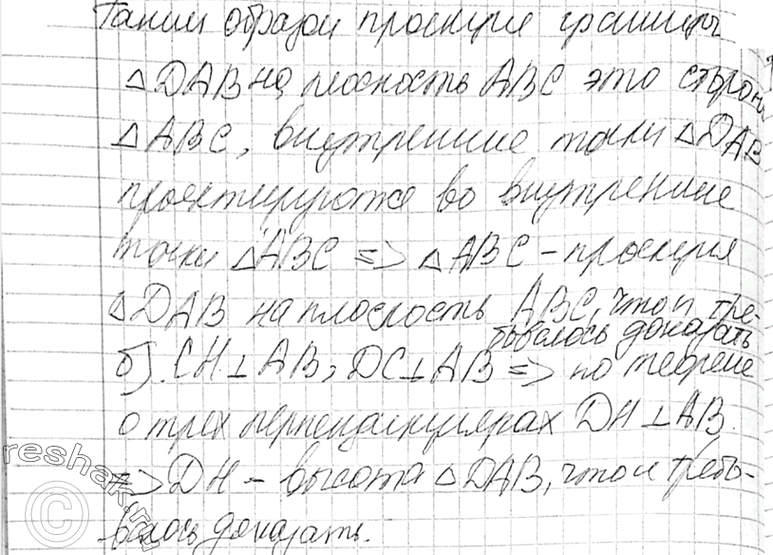 Таким образом проекция границы
△DAB на плоскость ABC это стороны
△ABC, внутренние точки △DAB
проектируются во внутренние
точки △ABC => △ABC - проекция
△DAB на плоскость ABC, что и тре-
бовалось доказать
б). CH⊥AB, DC⊥AB => по теореме
о трех перпендикулярах DH⊥AB.
=> DH - высота △DAB, что и требо-
валось доказать.
reshak.ru